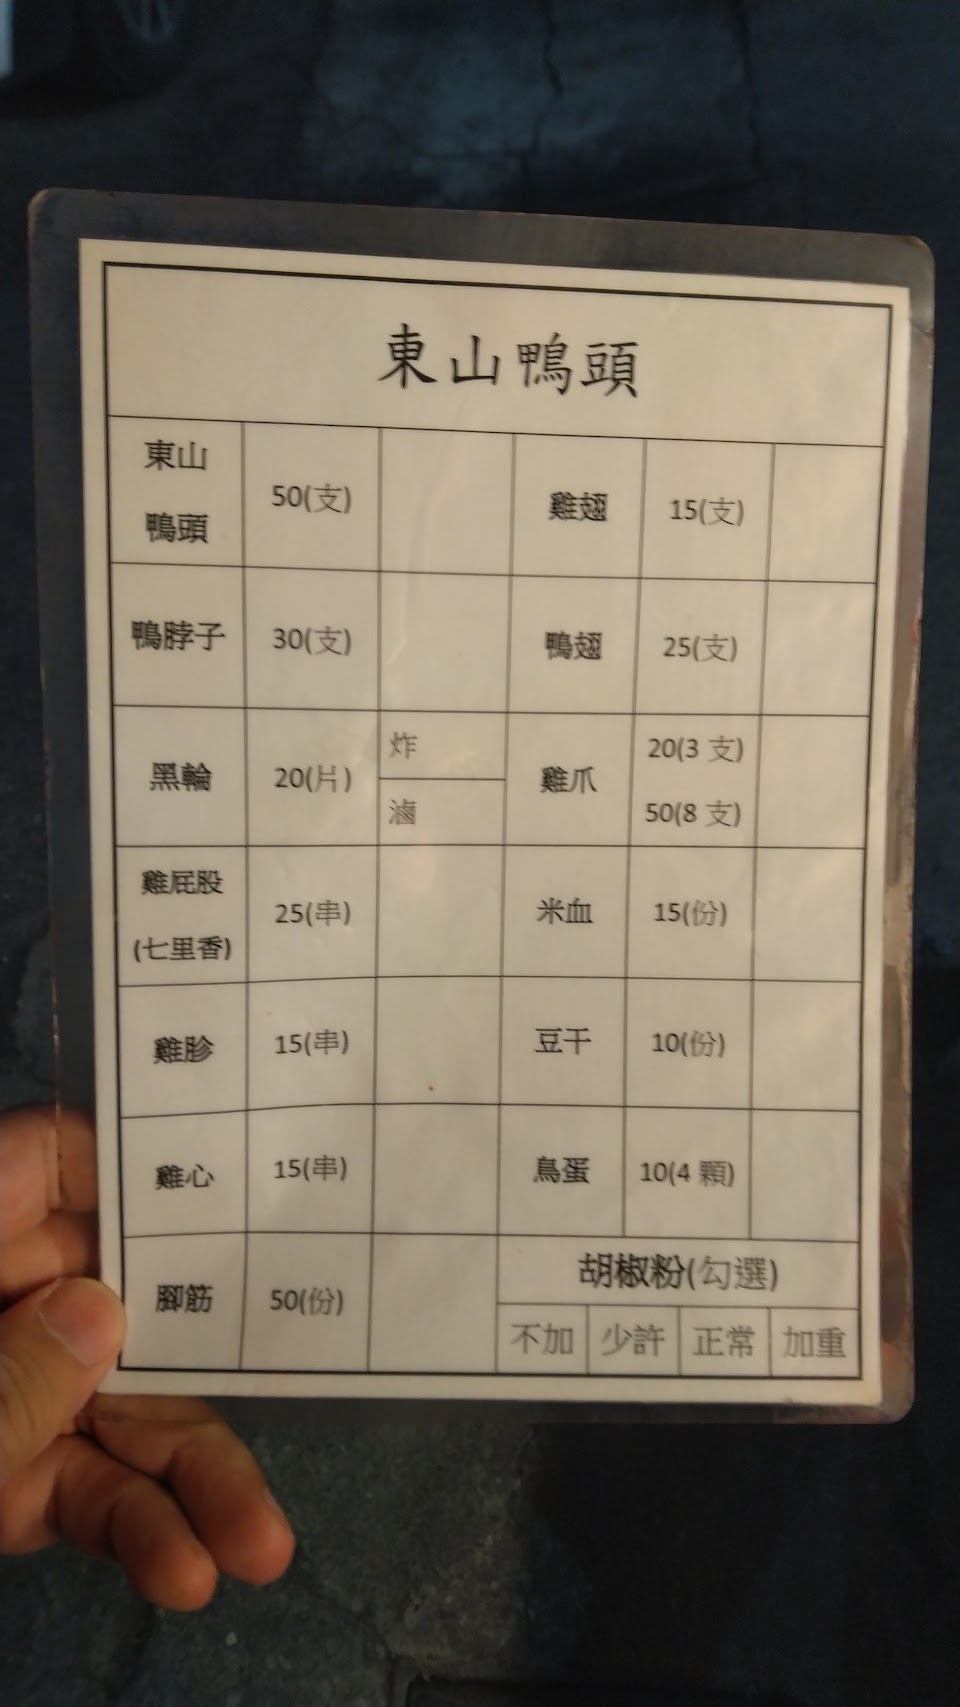 東山鴨頭
東山
鴨頭
50(支)
雞翅
15(支)
鴨脖子
30(支)
鴨翅
25(支)
黑輪
20(片)
炸
滷
雞爪
20(3 支)
50(8 支)
雞屁股
(七里香)
25(串)
米血
15(份)
雞胗
15(串)
豆干
10(份)
雞心
15(串)
鳥蛋
10(4 顆)
腳筋
50(份)
胡椒粉(勾選)
不加
少許
正常
加重